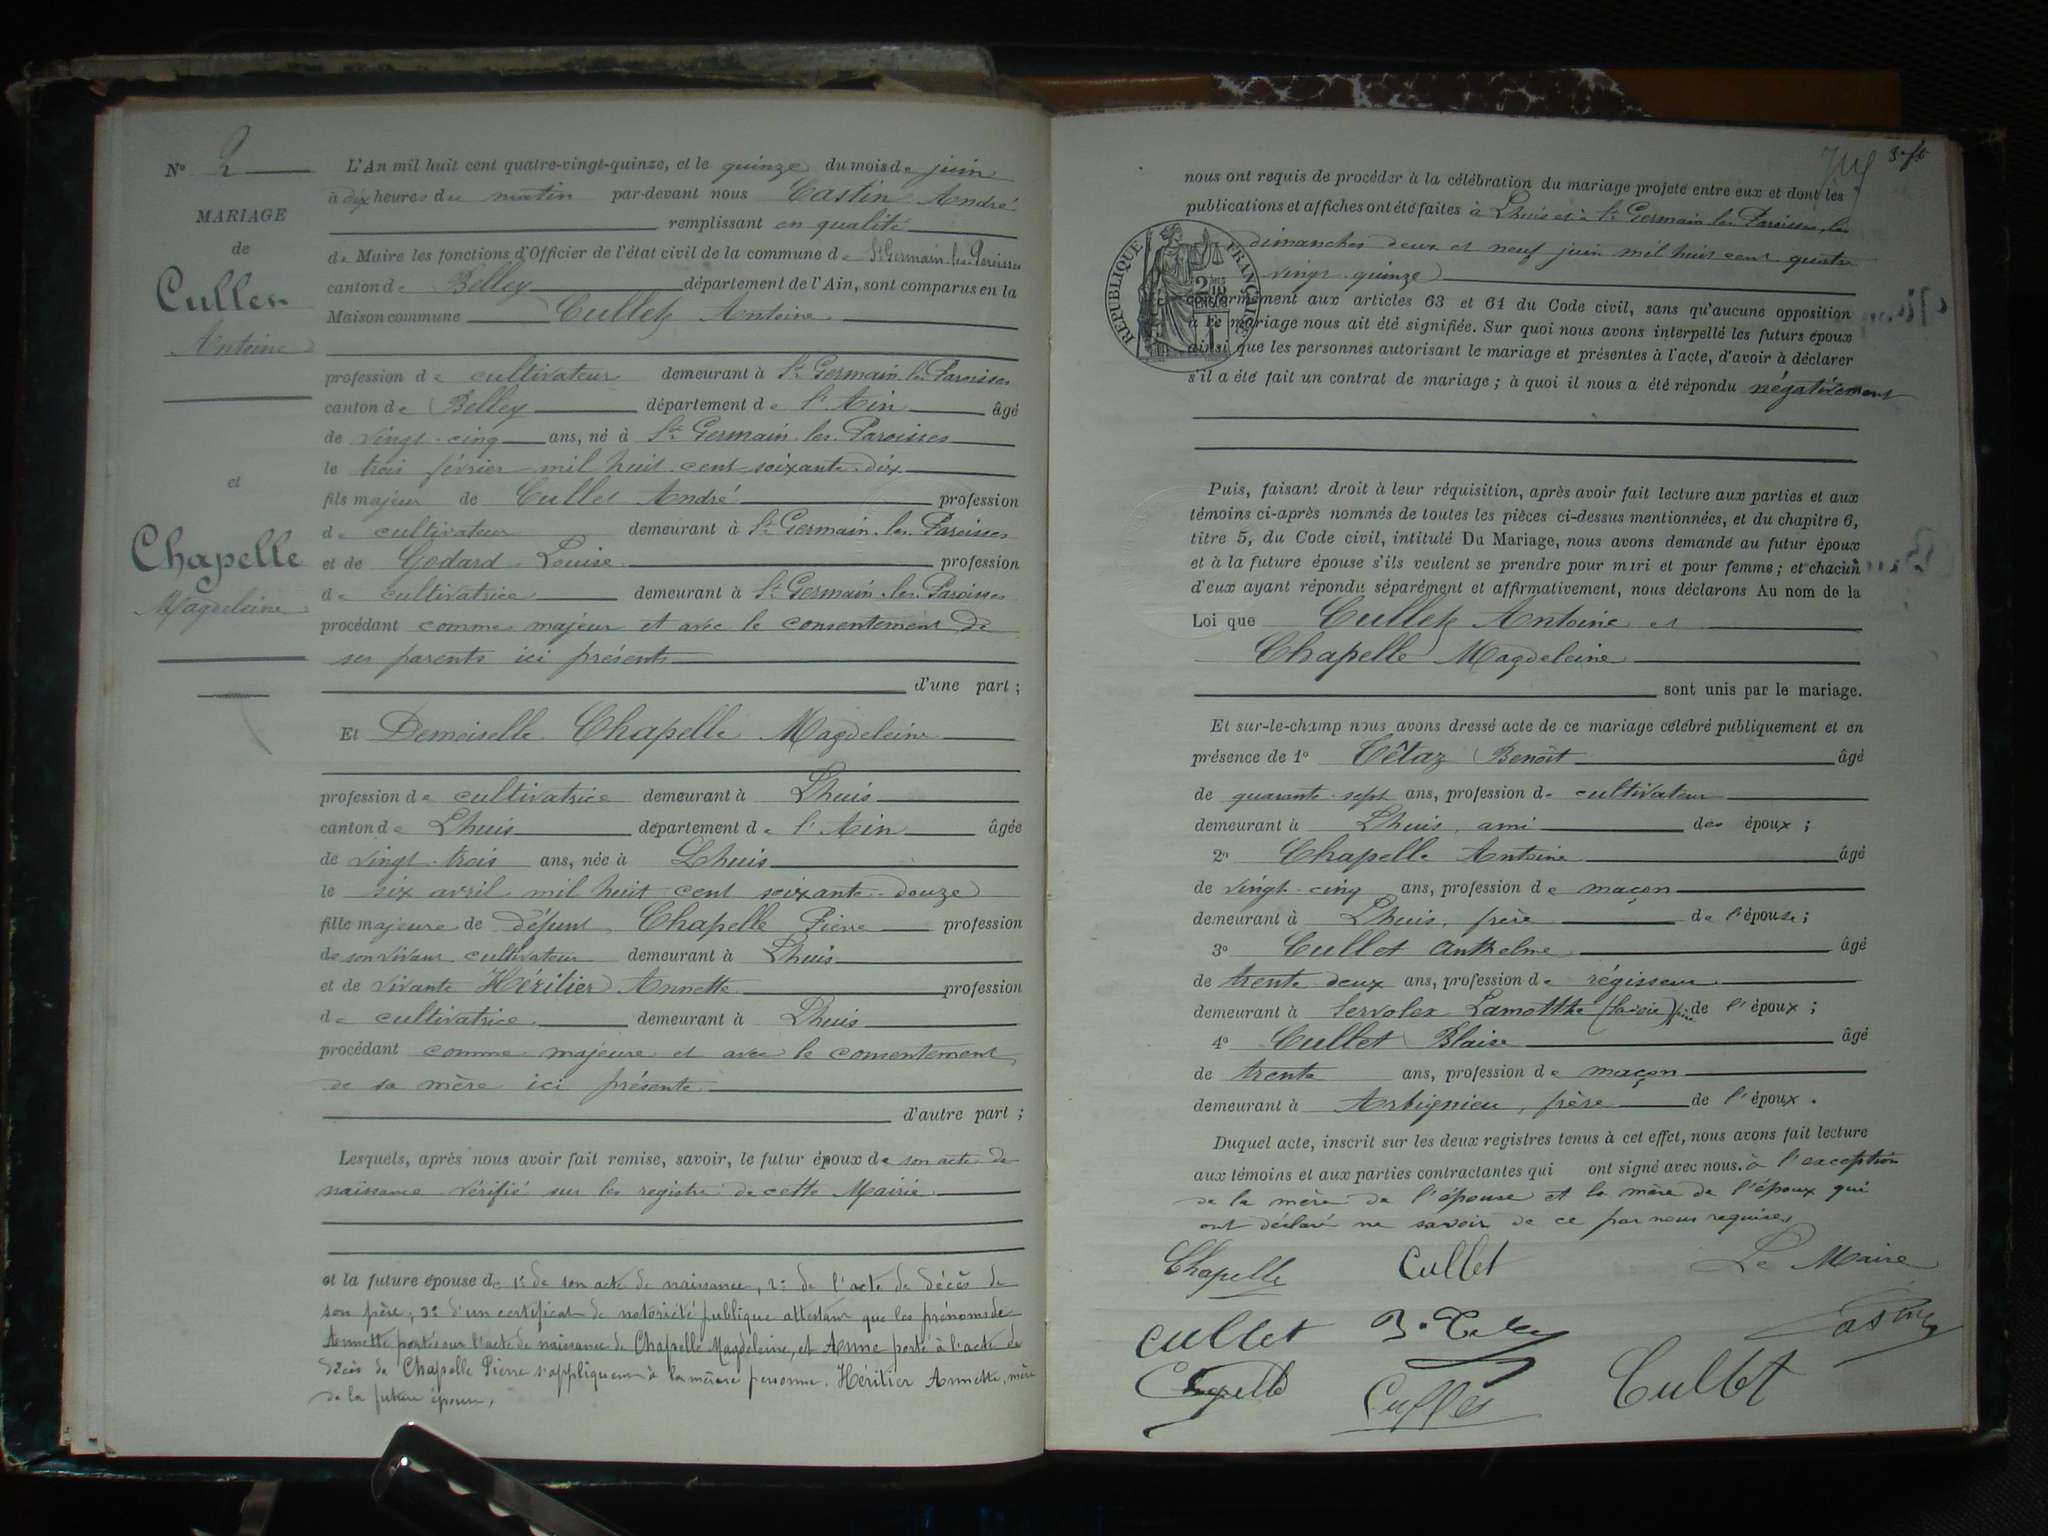 N° 2
MARIAGE
de
Cullet
Antoine
et
Chapelle
Magdeleine
L'An mil huit cent quatre-vingt-quinze, et le quinze du mois de juin
à dix heures du matin par-devant nous Castin André
remplissant en qualité
de Maire les fonctions d'Officier de l'état civil de la commune de St Germain-les-Paroisses
canton de Belley département de l'Ain, sont comparus en la
Maison commune Cullet Antoine
profession de cultivateur demeurant à St Germain-les-Paroisses
canton de Belley département de l'Ain âgé
de vingt-cinq ans, né à St Germain-les-Paroisses
le trois février mil huit cent soixante-dix
fils majeur de Cullet André profession
de cultivateur demeurant à St Germain-les-Paroisses
et de Godard Louise profession
de cultivatrice demeurant à St Germain-les-Paroisses
procédant comme majeur et avec le consentement de
ses parents ici présents
d'une part ;
Et Demoiselle Chapelle Magdeleine
profession de cultivatrice demeurant à Lhuis
canton de Lhuis département de l'Ain âgée
de vingt-trois ans, née à Lhuis
le six avril mil huit cent soixante-douze
fille majeure de défunt Chapelle Pierre profession
de son vivant cultivateur demeurant à Lhuis
et de vivante Héritier Annette profession
de cultivatrice demeurant à Lhuis
procédant comme majeure et avec le consentement
de sa mère ici présente
d'autre part ;
Lesquels, après nous avoir fait remise, savoir, le futur époux de son acte de
naissance vérifié sur les registre de cette Mairie
et la future épouse de 1° de son acte de naissance, 2° de l'acte de décès de
son père ; 3° d'un certificat de notoriété publique attestant que les prénoms de
Annette portés sur l'acte de naissance de Chapelle Magdeleine, et Anne porté à l'acte de
décès de Chapelle Pierre s'appliquent à la même personne, Héritier Annette, mère
de la future épouse.
nous ont requis de procéder à la célébration du mariage projeté entre eux et dont les
publications et affiches ont été faites à Lhuis et à St Germain-les-Paroisses, les
dimanches deux et neuf juin mil huit cent quatre
vingt-quinze
RÉPUBLIQUE FRANÇAISE
conformément aux articles 63 et 64 du Code civil, sans qu'aucune opposition
à ce mariage nous ait été signifiée. Sur quoi nous avons interpellé les futurs époux
ainsi que les personnes autorisant le mariage et présentes à l'acte, d'avoir à déclarer
s'il a été fait un contrat de mariage ; à quoi il nous a été répondu négativement
Puis, faisant droit à leur réquisition, après avoir fait lecture aux parties et aux
témoins ci-après nommés de toutes les pièces ci-dessus mentionnées, et du chapitre 6,
titre 5, du Code civil, intitulé Du Mariage, nous avons demandé au futur époux
et à la future épouse s'ils veulent se prendre pour mari et pour femme ; et chacun
d'eux ayant répondu séparément et affirmativement, nous déclarons Au nom de la
Loi que Cullet Antoine et
Chapelle Magdeleine
sont unis par le mariage.
Et sur-le-champ nous avons dressé acte de ce mariage célébré publiquement et en
présence de 1° Cêtaz Benoît âgé
de quarante-sept ans, profession de cultivateur
demeurant à Lhuis, ami des époux ;
2° Chapelle Antoine âgé
de vingt-cinq ans, profession de maçon
demeurant à Lhuis, frère de l'épouse ;
3° Cullet Anthelme âgé
de trente-deux ans, profession de régisseur
demeurant à Servolex Lamotthe (Savoie) frère de l'époux ;
4° Cullet Blaise âgé
de trente ans, profession de maçon
demeurant à Arbignieu, frère de l'époux.
Duquel acte, inscrit sur les deux registres tenus à cet effet, nous avons fait lecture
aux témoins et aux parties contractantes qui ont signé avec nous. à l'exception
de la mère de l'épouse et la mère de l'époux qui
ont déclaré ne savoir de ce par nous requises
Chapelle Cullet Le Maire
Cullet Castin
Chapelle Cullet Cullet